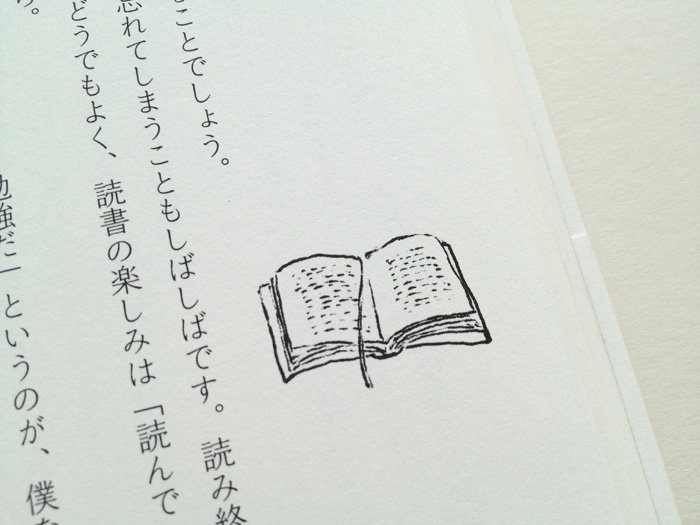 ことでしょう。
忘れてしまうこともしばしばです。読み終
どうでもよく、読書の楽しみは「読んで
勉強だ」というのが、僕